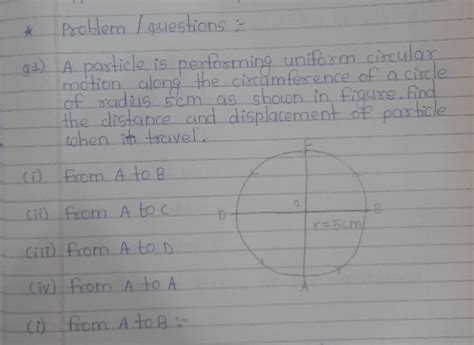 * Problem / questions :-
Q1) A particle is performing uniform circular
motion along the circumference of a circle
of radius 5cm as shown in figure. find
the distance and displacement of particle
when it travel.
(i) from A to B
(ii) from A to C
(iii) from A to D
(iv) from A to A
(i) from A to B :-
C
D
O
B
r = 5cm
A